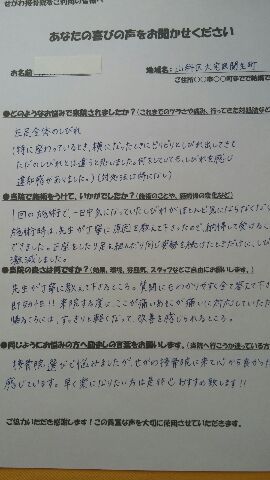 せがわ接骨院をご利用の皆様へ
あなたの喜びの声をお聞かせください
お名前
地域名:山科区大宅
●どのようなお悩みで来院されましたか?(これまでのケガさや痛み、行ってきた対処法など
左足全体のしびれ
(特に座わっているとき、横になったときにびりびりとしびれ出してきて
ただのしびれとは違うと思いました。何をしていてもしびれを感じ
違和感がありました。)(対処法は特になし)
●当院で施術をうけて、いかがでしたか?(施術のことや、施術後の変化など)
1回の施術で、一日中気になっていたしびれがほとんど気にならなくなり
施術時は、先生が丁寧に原因を教えて下さったので、納得して受けることが
できました。正座をしたり足を組んだり同じ姿勢を続けたときだけにしびれ
激減しました。
●当院の良さは何ですか?(効果、環境、雰囲気、スタッフなどご自由にお願いします。)
先生が丁寧に教えて下さるところ。質問にもわかりやすく全て答えて下さ
来院する度に、ここが痛いあしが痛いに対応していただ
帰るころには、すっきりと軽くなって、改善を感じられるところ。
●同じようにお悩みの方へ励ましの言葉をお願いします。(当院へ行こうか迷っている方
接骨院選びで悩みましたが、せがわ接骨院に来て心から良かった
感じています。早く楽になりたい方は是非ともおすすめ致します!!
ご協力いただき感謝します!この貴重な声を大切に活用させていただきます。